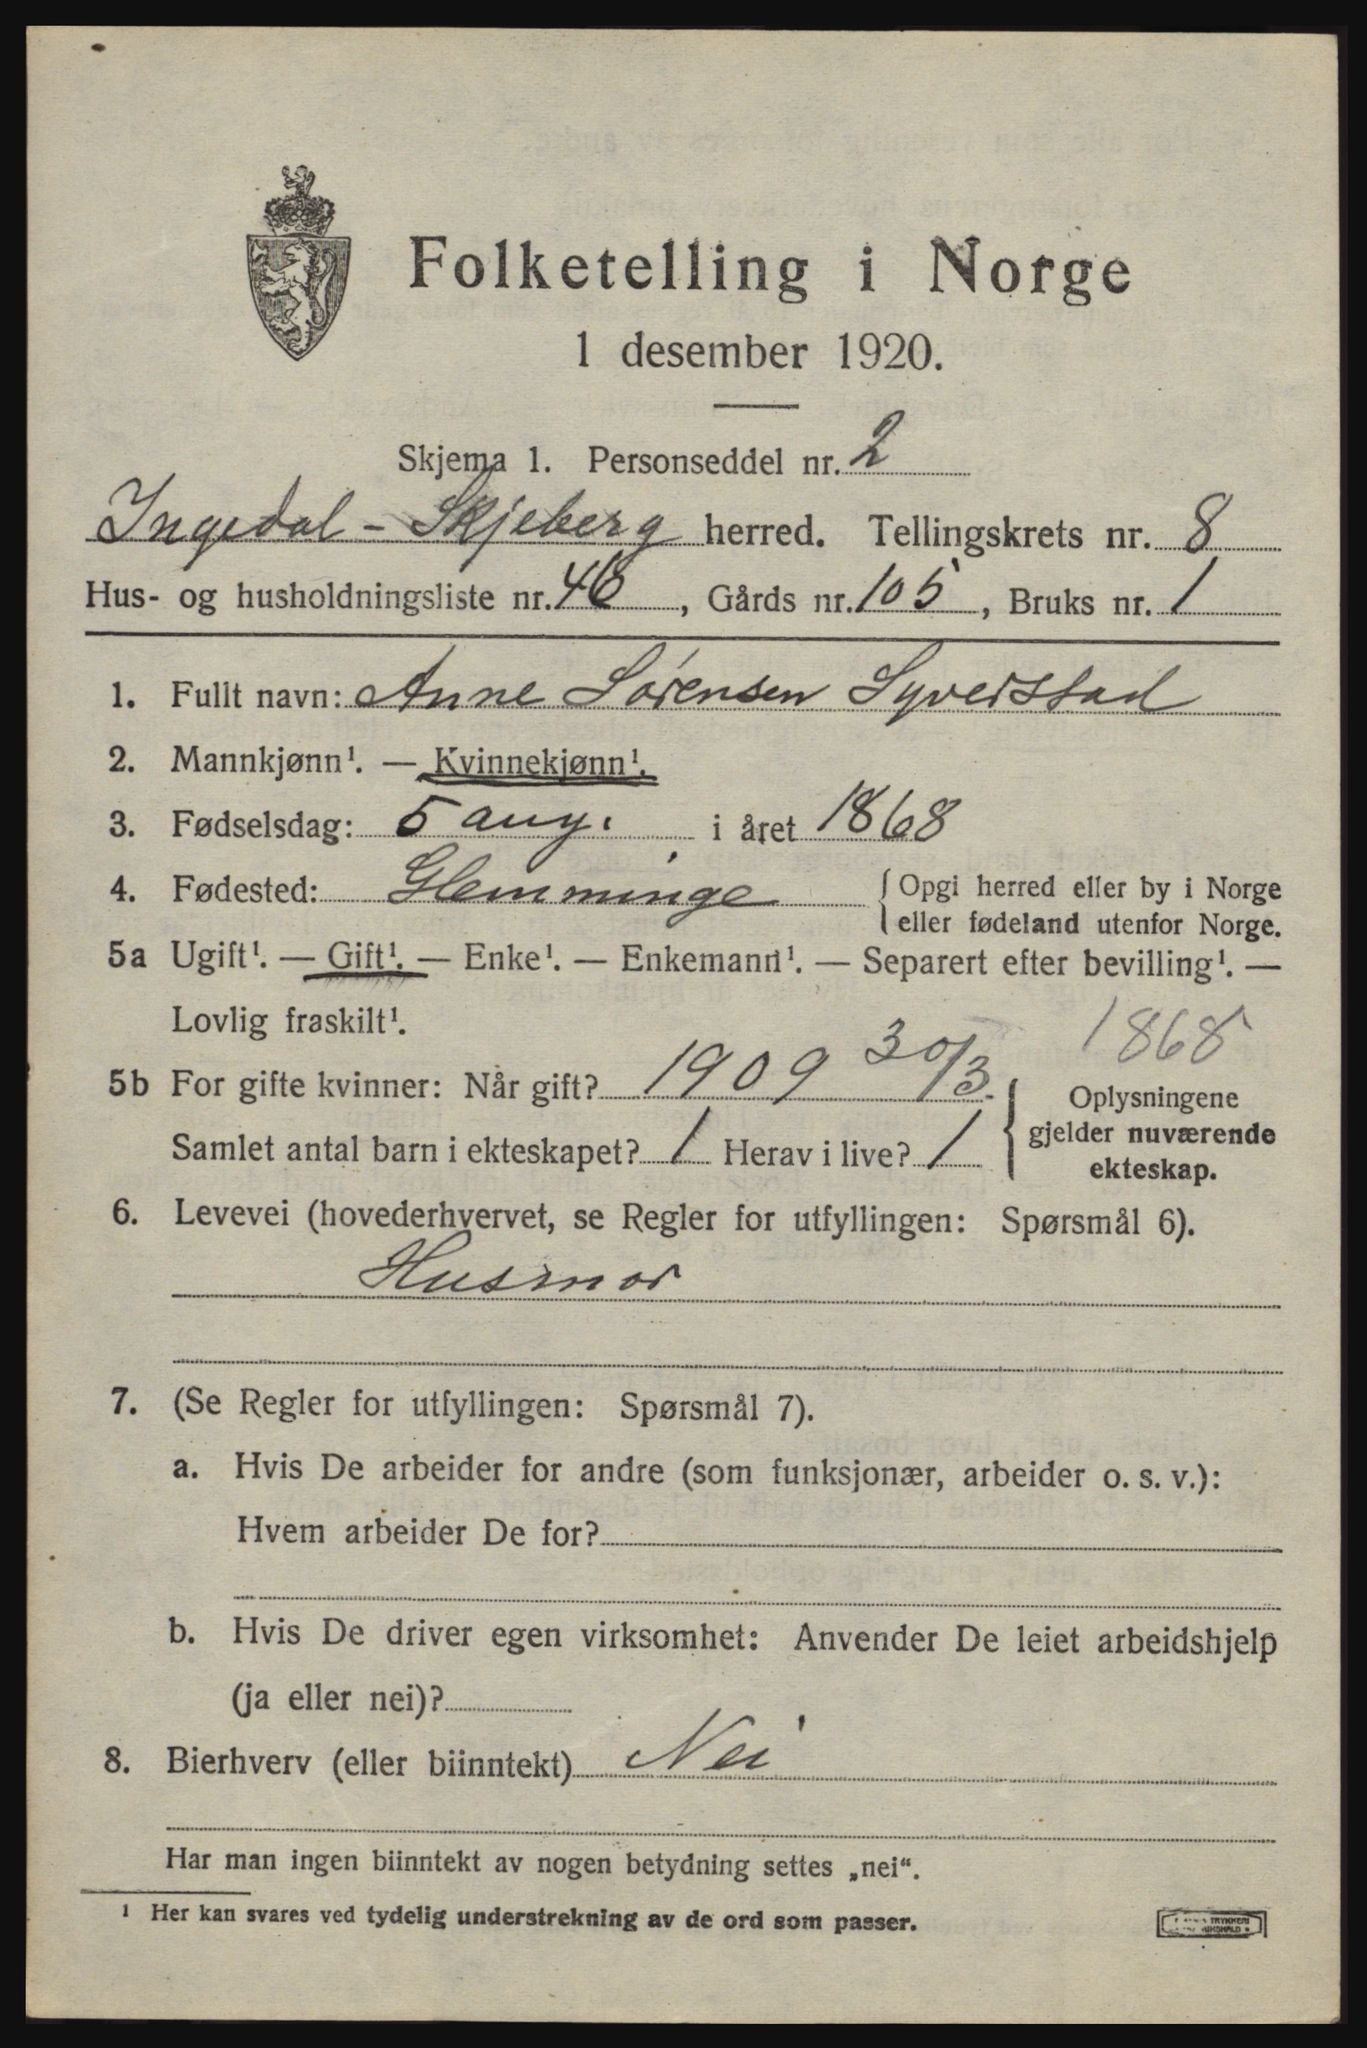 Folketelling i Norge
1 desember 1920.
Skjema 1. Personseddel nr. 2
Ingedal - Skjeberg herred. Tellingskrets nr. 8
Hus- og husholdningsliste nr. 46, Gårds nr. 105, Bruks nr. 1
1. Fullt navn: Anne Sørensen Syverstad
2. Mannkjønn¹. — Kvinnekjønn¹.
3. Fødselsdag: 5 aug. i året 1868
4. Fødested: Glemminge { Opgi herred eller by i Norge
eller fødeland utenfor Norge.
5a Ugift¹. — Gift¹. — Enke¹. — Enkemann¹. — Separert efter bevilling¹. —
Lovlig fraskilt¹.
1868
5b For gifte kvinner: Når gift? 1909 30/3.
Samlet antal barn i ekteskapet? 1 Herav i live? 1
Oplysningene
gjelder nuværende
ekteskap.
6. Levevei (hovederhvervet, se Regler for utfyllingen: Spørsmål 6).
Husmor
7. (Se Regler for utfyllingen: Spørsmål 7).
a. Hvis De arbeider for andre (som funksjonær, arbeider o. s. v.):
Hvem arbeider De for?
b. Hvis De driver egen virksomhet: Anvender De leiet arbeidshjelp
(ja eller nei)?
8. Bierhverv (eller biinntekt) Nei
Har man ingen biinntekt av nogen betydning settes „nei“.
¹ Her kan svares ved tydelig understrekning av de ord som passer.